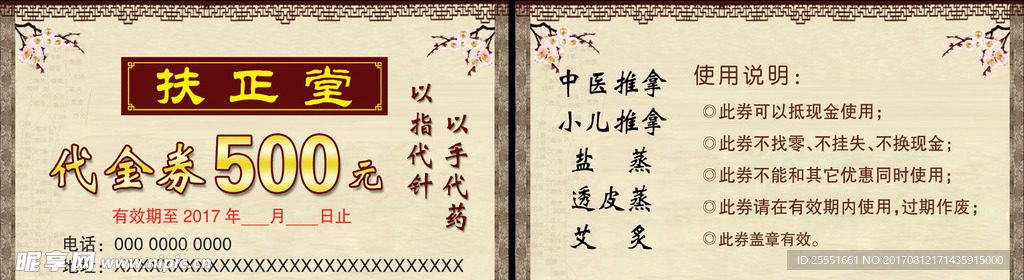 扶正堂
代金券500元
有效期至 2017 年 ___月 ___日止
电话：000 0000 0000
XXXXXXXXXXXXXXXXXXXXXXXXXX
以指代针
以手代药
中医推拿
小儿推拿
盐 蒸
透皮蒸
艾 炙
使用说明：
◎此券可以抵现金使用；
◎此券不找零、不挂失、不换现金；
◎此券不能和其它优惠同时使用；
◎此券请在有效期内使用，过期作废；
◎此券盖章有效。
昵享网 www.nipic.cn
ID:25551661 NO:20170812171435915000